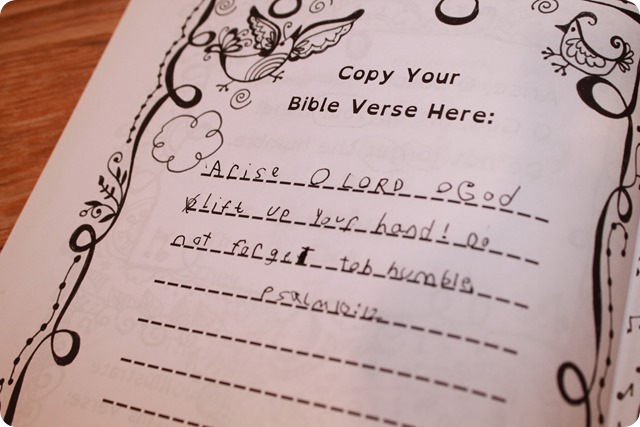 Copy Your
Bible Verse Here:
Arise O LORD oGod
lift up your hand! Do
not forget teh humble
Psalm 10:12